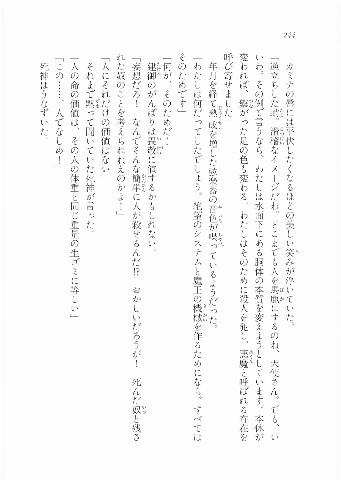 244
カミナの唇には平伏したくなるほどの美しい笑みが浮いていた。
「逆立ちした蛸。滑稽なイメージだわ。どこまでも人を馬鹿にするのね、天使さん。でも、い
いわ。その例で言うなら、わたしは水面下にある胴体の本質を変えようとしています。本体が
変われば、繋がった足の色も変わる。わたしはそのために殺人を犯し、悪魔と呼ばれる存在を
呼び寄せました」
年月を経て熟成を施した弦楽器の音色が唄っているようだった。
「わたしは何だってしたでしょう。絶望のシステムと魔王の機械を作るためになら。すべては
そのためです」
「何が、そのためだ！」
建御のがんばりは異教に値するかもしれない。
「妄想だろ！　なんでそんな簡単に人が殺せるんだ!?　おかしいだろうが！　死んだ奴と残さ
れた奴のことを考えられねえのかよ！」
「人にそれだけの価値はない」
それまで黙って聞いていた死神が言った。
「人の命の価値は、その人の体重と同じ重量の生ゴミに等しい」
「この……、人でなしめ！」
死神はうなずいた。